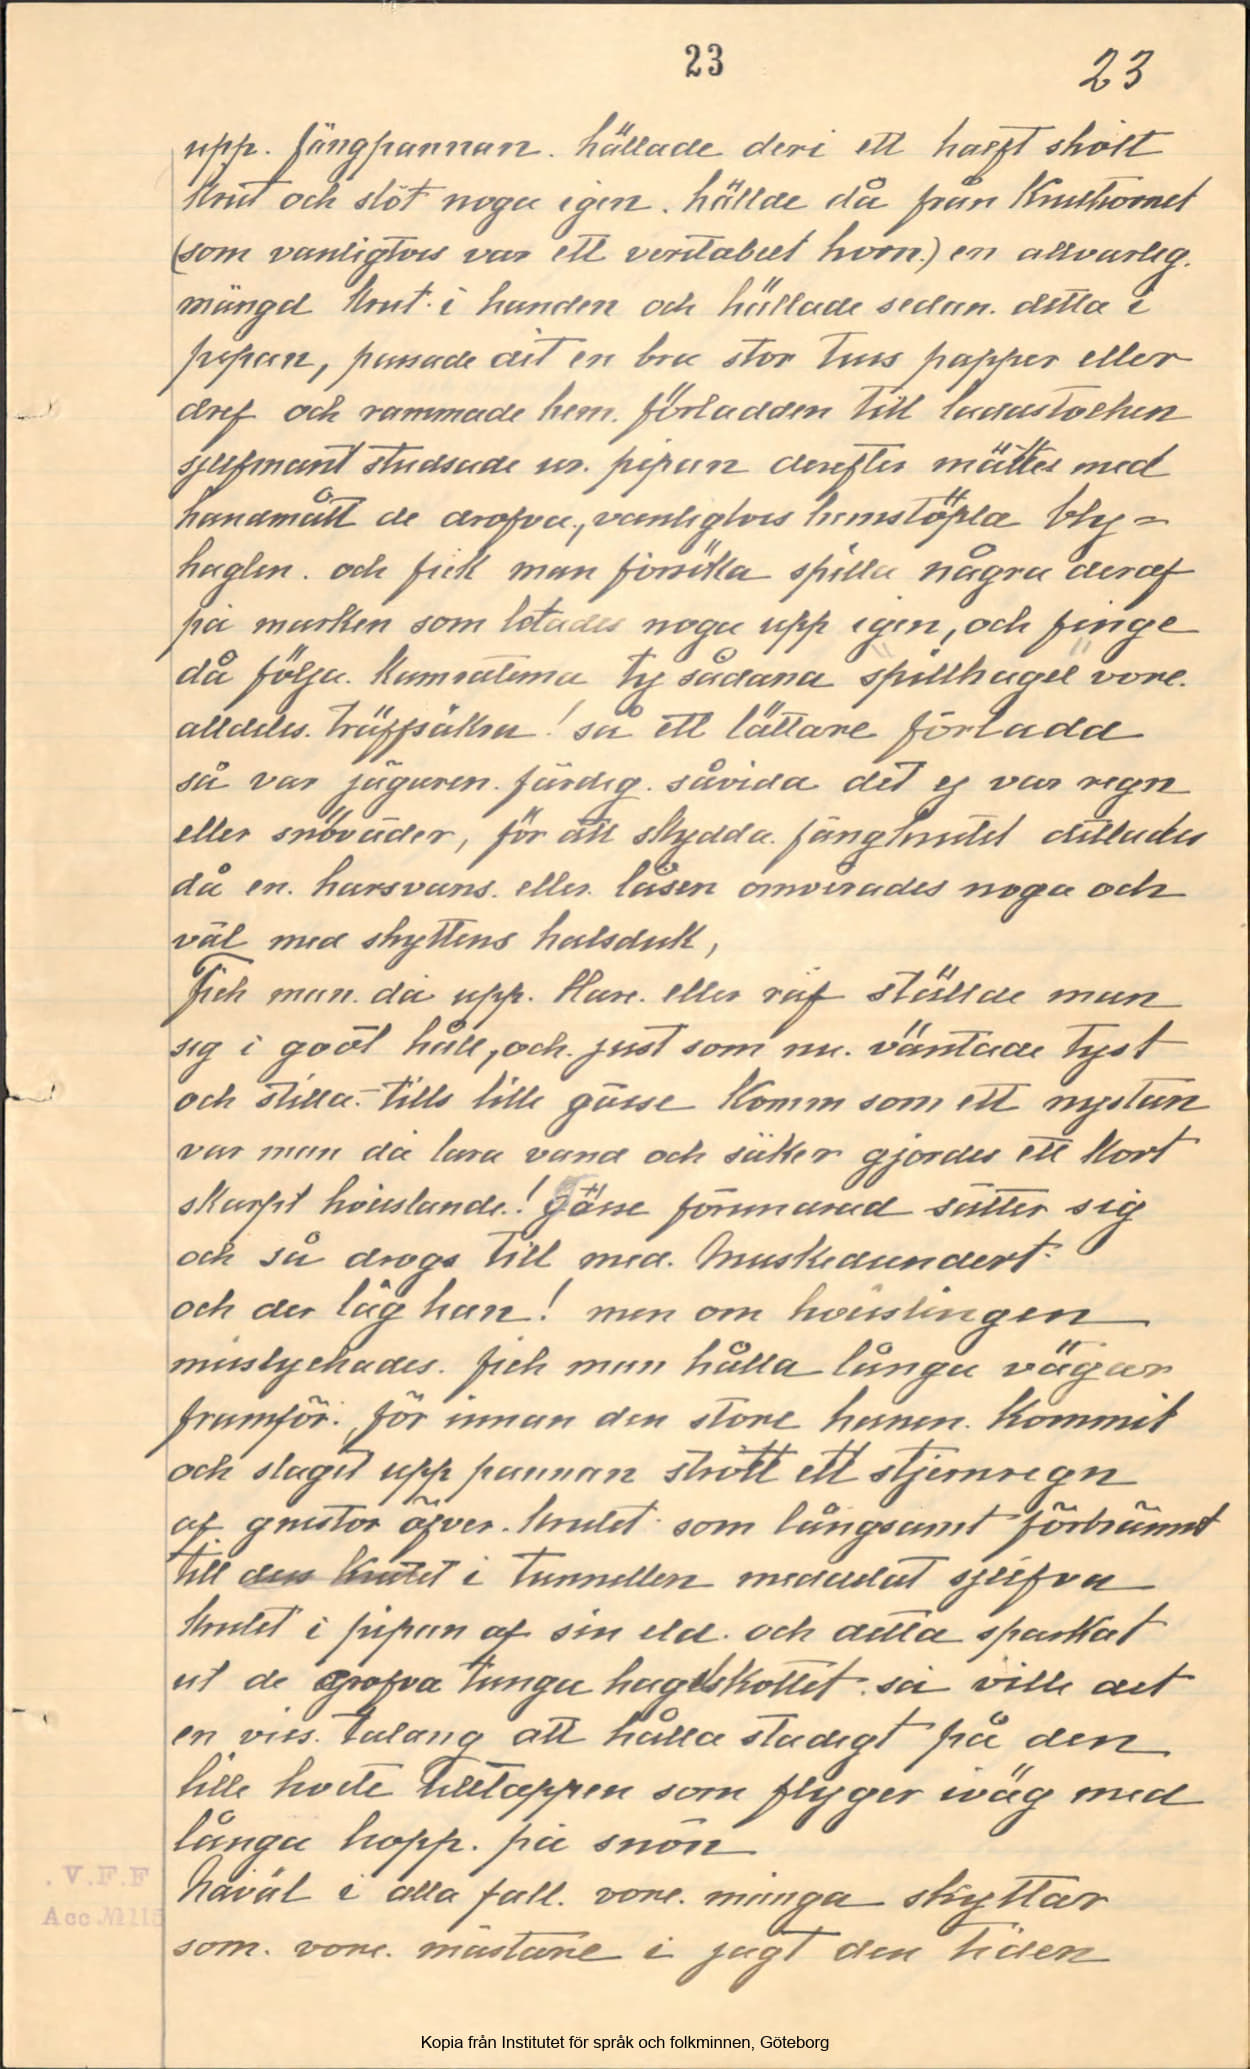 23
23
upp. fängpannan. hällade deri ett halft skålt
krut och slöt noga igen. hällde då från Kruthornet
(som vanligtvis var ett veritabelt horn.) en allvarlig.
mängd krut i handen och hällade sedan. detta i
pipan, passade dit en bra stor tuss papper eller
dref och rammade hem. förladden till laddstocken
sjelfmant studsade ur. pipan derefter mättes med
handmått de drofva, vanligtvis hemstöpta bly=
haglen. och fick man försöka spilla några deraf
på marken som letades noga upp igen, och finge
då följa. kamraterna ty sådana "spillhagel" vore.
alldeles. träffsäkra! så ett lättare förladd
så var jägaren. färdig. såvida det ej var regn
eller snöväder, för att skydda. fängkrutet dillades
då en. harsvans. eller. låsen omvirades noga och
väl med skyttens halsduk,
Fick man. då upp. Hare. eller räf ställde man
sig i godt håll, och. just som nu. väntade tyst
och stilla. tills lille gösse Komm som ett nystan
var man då bara vand och säker gjordes ett kort
skarpt hvisslande.! gösse förunnarad sätter sig
och så drogs till med. Muskedundert
och der låg han! men om hvisslingen
misslyckades. fick man hålla långa vägar
framför. för innan den store hanen. Kommit
och slaget upp pannan strött ett stjernregn
af gnistor öfver. krutet som långsamt förbrännt
till den krutet i tunnellen meddelat sjelfva
krutet i pipan af sin eld. och detta sparkat
ut de grofva tunga hagelskottet. så ville det
en viss. talang att hålla stadigt på den
lille hvite tilltappen som flyger iväg med
långa hopp. på snön
Naväl i alla fall. vore. många skyttar
som. vore. mästare i jagt den tiden
. V.F.F
Acc. № 115
Kopia från Institutet för språk och folkminnen, Göteborg